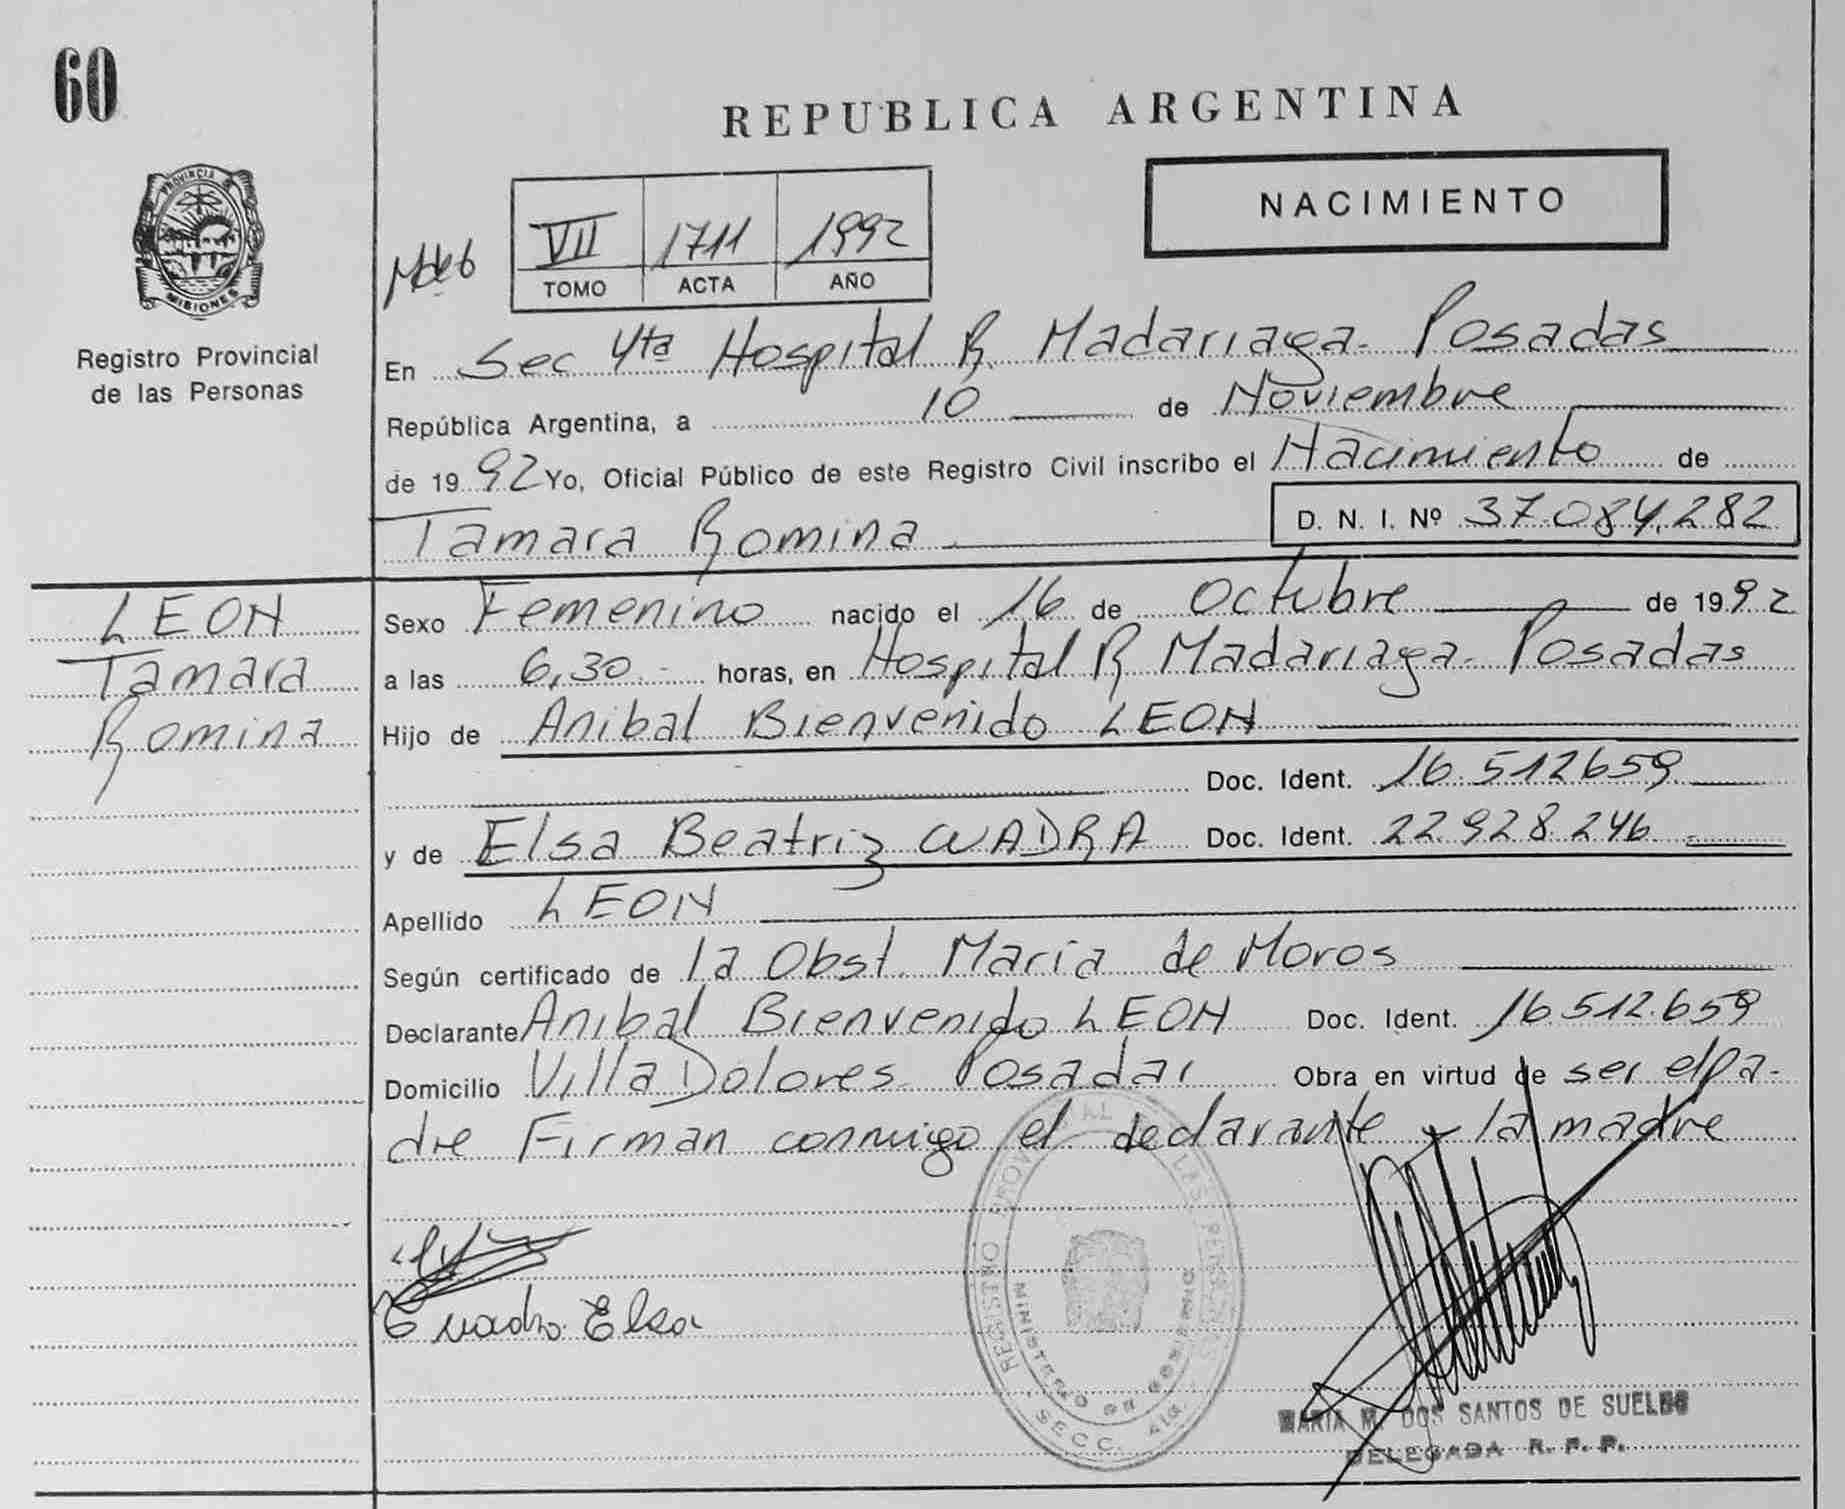 60
REPUBLICA ARGENTINA
PROVINCIA DE
MISIONES
Registro Provincial
de las Personas
NACIMIENTO
VII 1711 1992
TOMO ACTA AÑO
En Sec 4ta Hospital R. Madariaga- Posadas
República Argentina, a 10 de Noviembre
de 1992 Yo, Oficial Público de este Registro Civil inscribo el Nacimiento de
Tamara Romina D. N. I. Nº 37.084.282
LEON
Tamara
Romina
Sexo Femenino nacido el 16 de Octubre de 1992
a las 6,30.- horas, en Hospital R Madariaga- Posadas
Hijo de Anibal Bienvenido LEON
Doc. Ident. 16.512659
y de Elsa Beatriz CUADRA Doc. Ident. 22.928.246
Apellido LEON
Según certificado de la Obst. Maria de Moros
Declarante Anibal Bienvenido LEON Doc. Ident. 16.512.659
Domicilio Villa Dolores- Posadas Obra en virtud de ser el pa-
dre Firman conmigo el declarante y la madre
Cuadra Elsa
REGISTRO PROVINCIAL LAS PERSONAS
MINISTERIO DE GOBIERNO
SECC.
MARIA M. DOS SANTOS DE SUELDO
DELEGADA R. P. P.